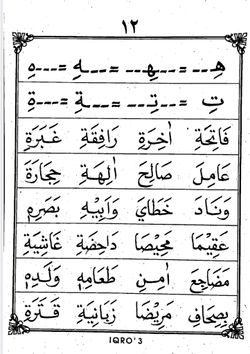 ١٢
هِـ--- = ---ـهِـ--- = ---ـهِ = ---هِ
تِ = ---تِـ--- = ---ـةِ = ---ةِ
فَاتِحَةَ اٰخِرَةِ رَافِقَةِ غَبَرَةِ
عَامِلَ صَالِحَ اٰلِهَةِ حِجَارَةِ
وَنَادَ خَطَايَ وَاَبِيْهِ بَصَرِهِ
عَقِيْمًا مَحِيْصًا دَاحِضَةِ غَاشِيَةِ
مَضَاجِعَ اٰمِنِ طَعَامِهِ وَلَدِهِ
بِصِحَافِ مَرِيْضًا زَبَانِيَةَ قَتَرَةِ
IQRO' 3